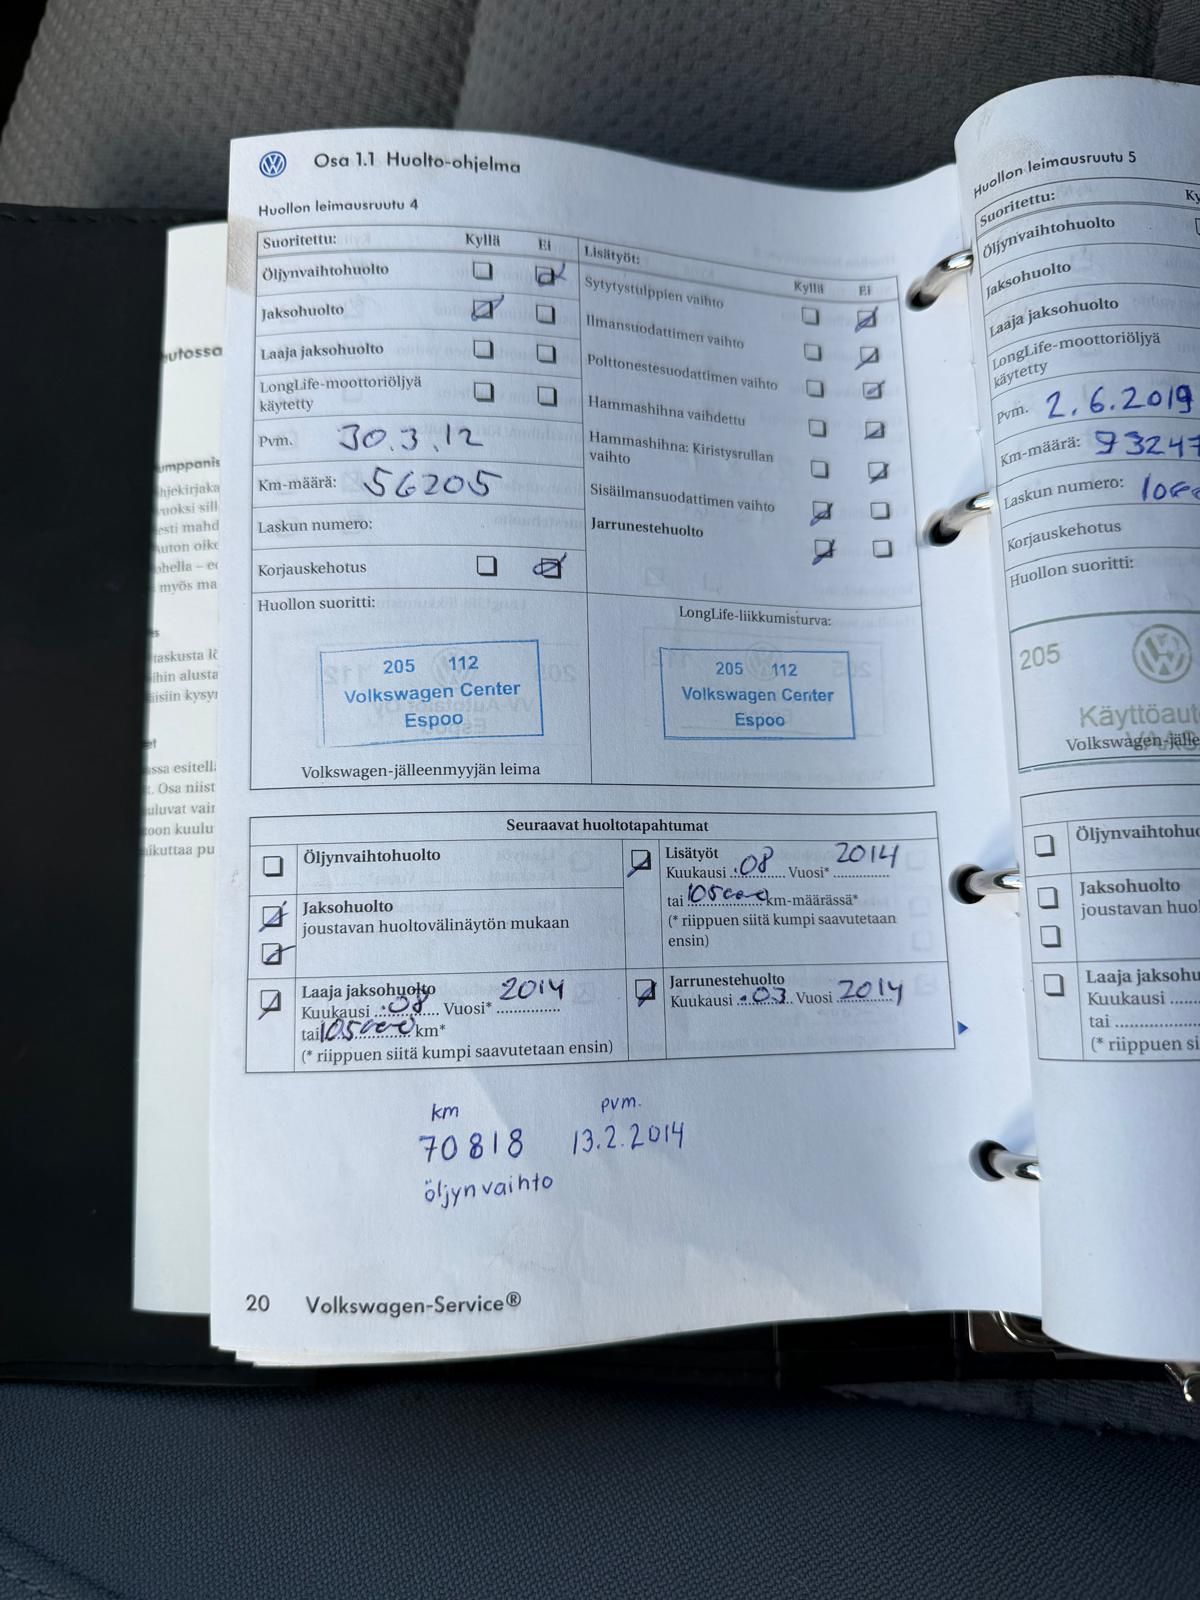 Osa 1.1 Huolto-ohjelma
Huollon leimausruutu 4
Suoritettu: Kyllä Ei
Öljynvaihtohuolto
Jaksohuolto
Laaja jaksohuolto
LongLife-moottoriöljyä
käytetty
Pvm. 30.3.12
Km-määrä: 56205
Laskun numero:
Korjauskehotus
Lisätyöt: Kyllä Ei
Sytytystulppien vaihto
Ilmansuodattimen vaihto
Polttonestesuodattimen vaihto
Hammashihna vaihdettu
Hammashihna: Kiristysrullan
vaihto
Sisäilmansuodattimen vaihto
Jarrunestehuolto
Huollon suoritti:
205 112
Volkswagen Center
Espoo
Volkswagen-jälleenmyyjän leima
LongLife-liikkumisturva:
205 112
Volkswagen Center
Espoo
Seuraavat huoltotapahtumat
Öljynvaihtohuolto
Jaksohuolto
joustavan huoltovälinäytön mukaan
Laaja jaksohuolto
Kuukausi 08 Vuosi* 2014
tai 105000 km*
(* riippuen siitä kumpi saavutetaan ensin)
Lisätyöt
Kuukausi 08 Vuosi* 2014
tai 105000 km-määrässä*
(* riippuen siitä kumpi saavutetaan
ensin)
Jarrunestehuolto
Kuukausi 03 Vuosi 2014
km pvm.
70818 13.2.2014
öljynvaihto
20 Volkswagen-Service®
Huollon leimausruutu 5
Suoritettu: Ky
Öljynvaihtohuolto
Jaksohuolto
Laaja jaksohuolto
LongLife-moottoriöljyä
käytetty
Pvm. 2.6.2019
Km-määrä: 93247
Laskun numero:
Korjauskehotus
Huollon suoritti:
205
Käyttöaut
Volkswagen-jälle
Öljynvaihtohuo
Jaksohuolto
joustavan huol
Laaja jaksohu
Kuukausi
tai
(* riippuen si
utossa
umppanis
hjekirjaka
uoksi sill
esti mahd
Auton oike
ohella – ec
myös ma
taskusta lö
ihin alusta
äisiin kysyr
ssa esitellä
t. Osa niist
uluvat vair
toon kuulu
aikuttaa pu